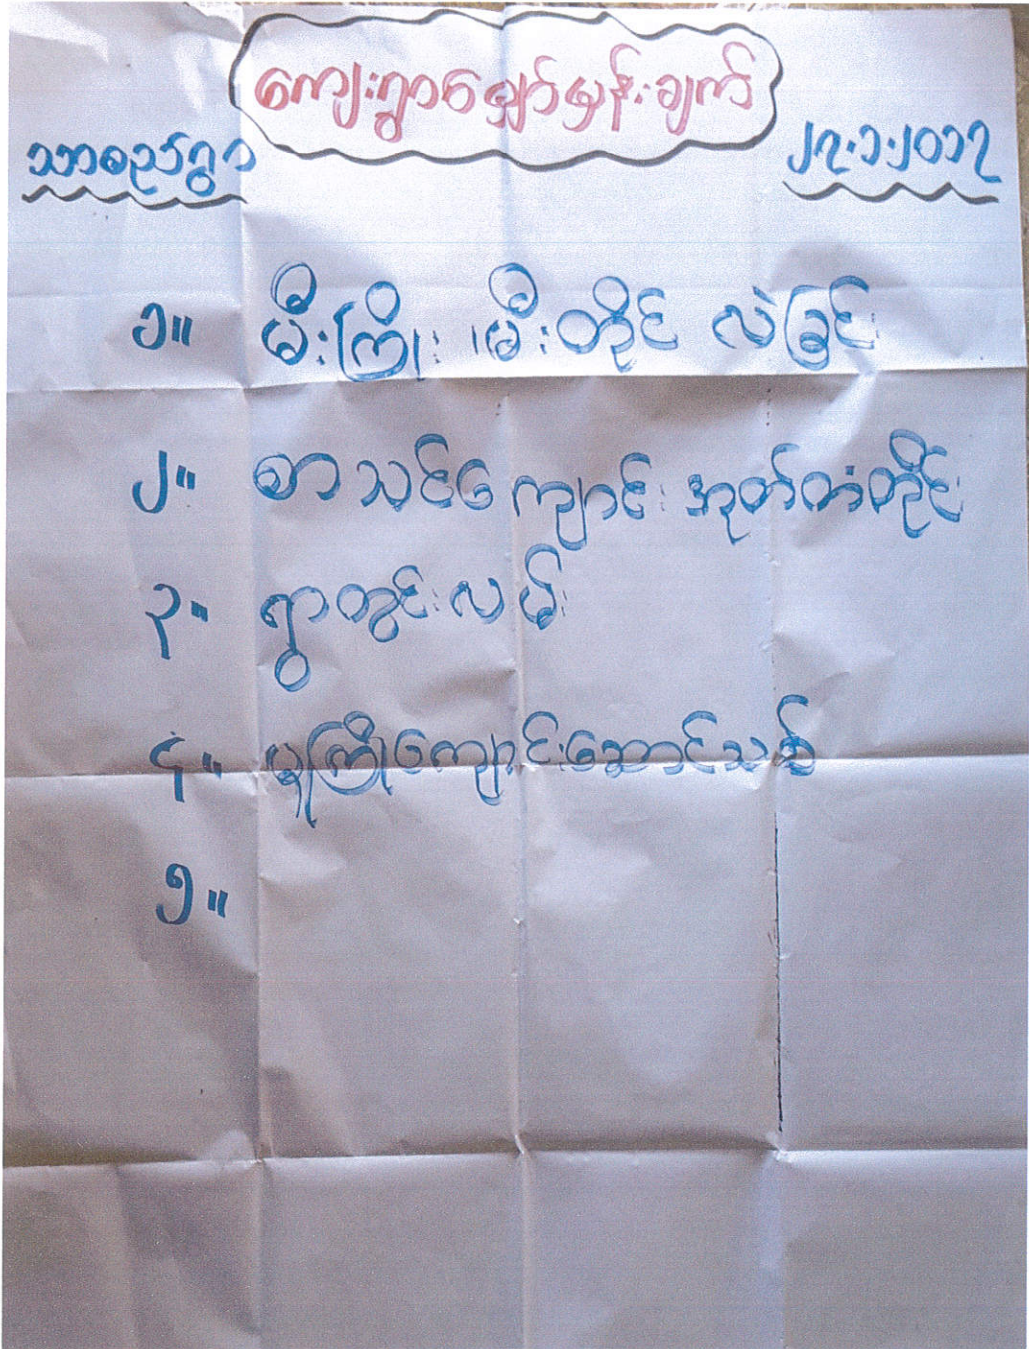 ကျေးရွာမျှော်မှန်းချက်
သာစည်ရွာ
၂၇.၁.၂၀၁၇
၁။ မီးကြိုး၊ မီးတိုင် လဲခြင်း
၂။ စာသင်ကျောင်း အုတ်တံတိုင်း
၃။ ရွာတွင်းလမ်း
၄။ မူကြိုကျောင်းဆောင်သစ်
၅။